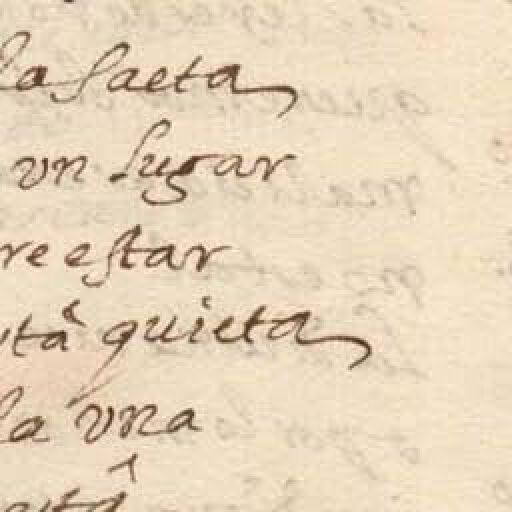 la saeta
vn lugar
re estar
tã quieta
la vna